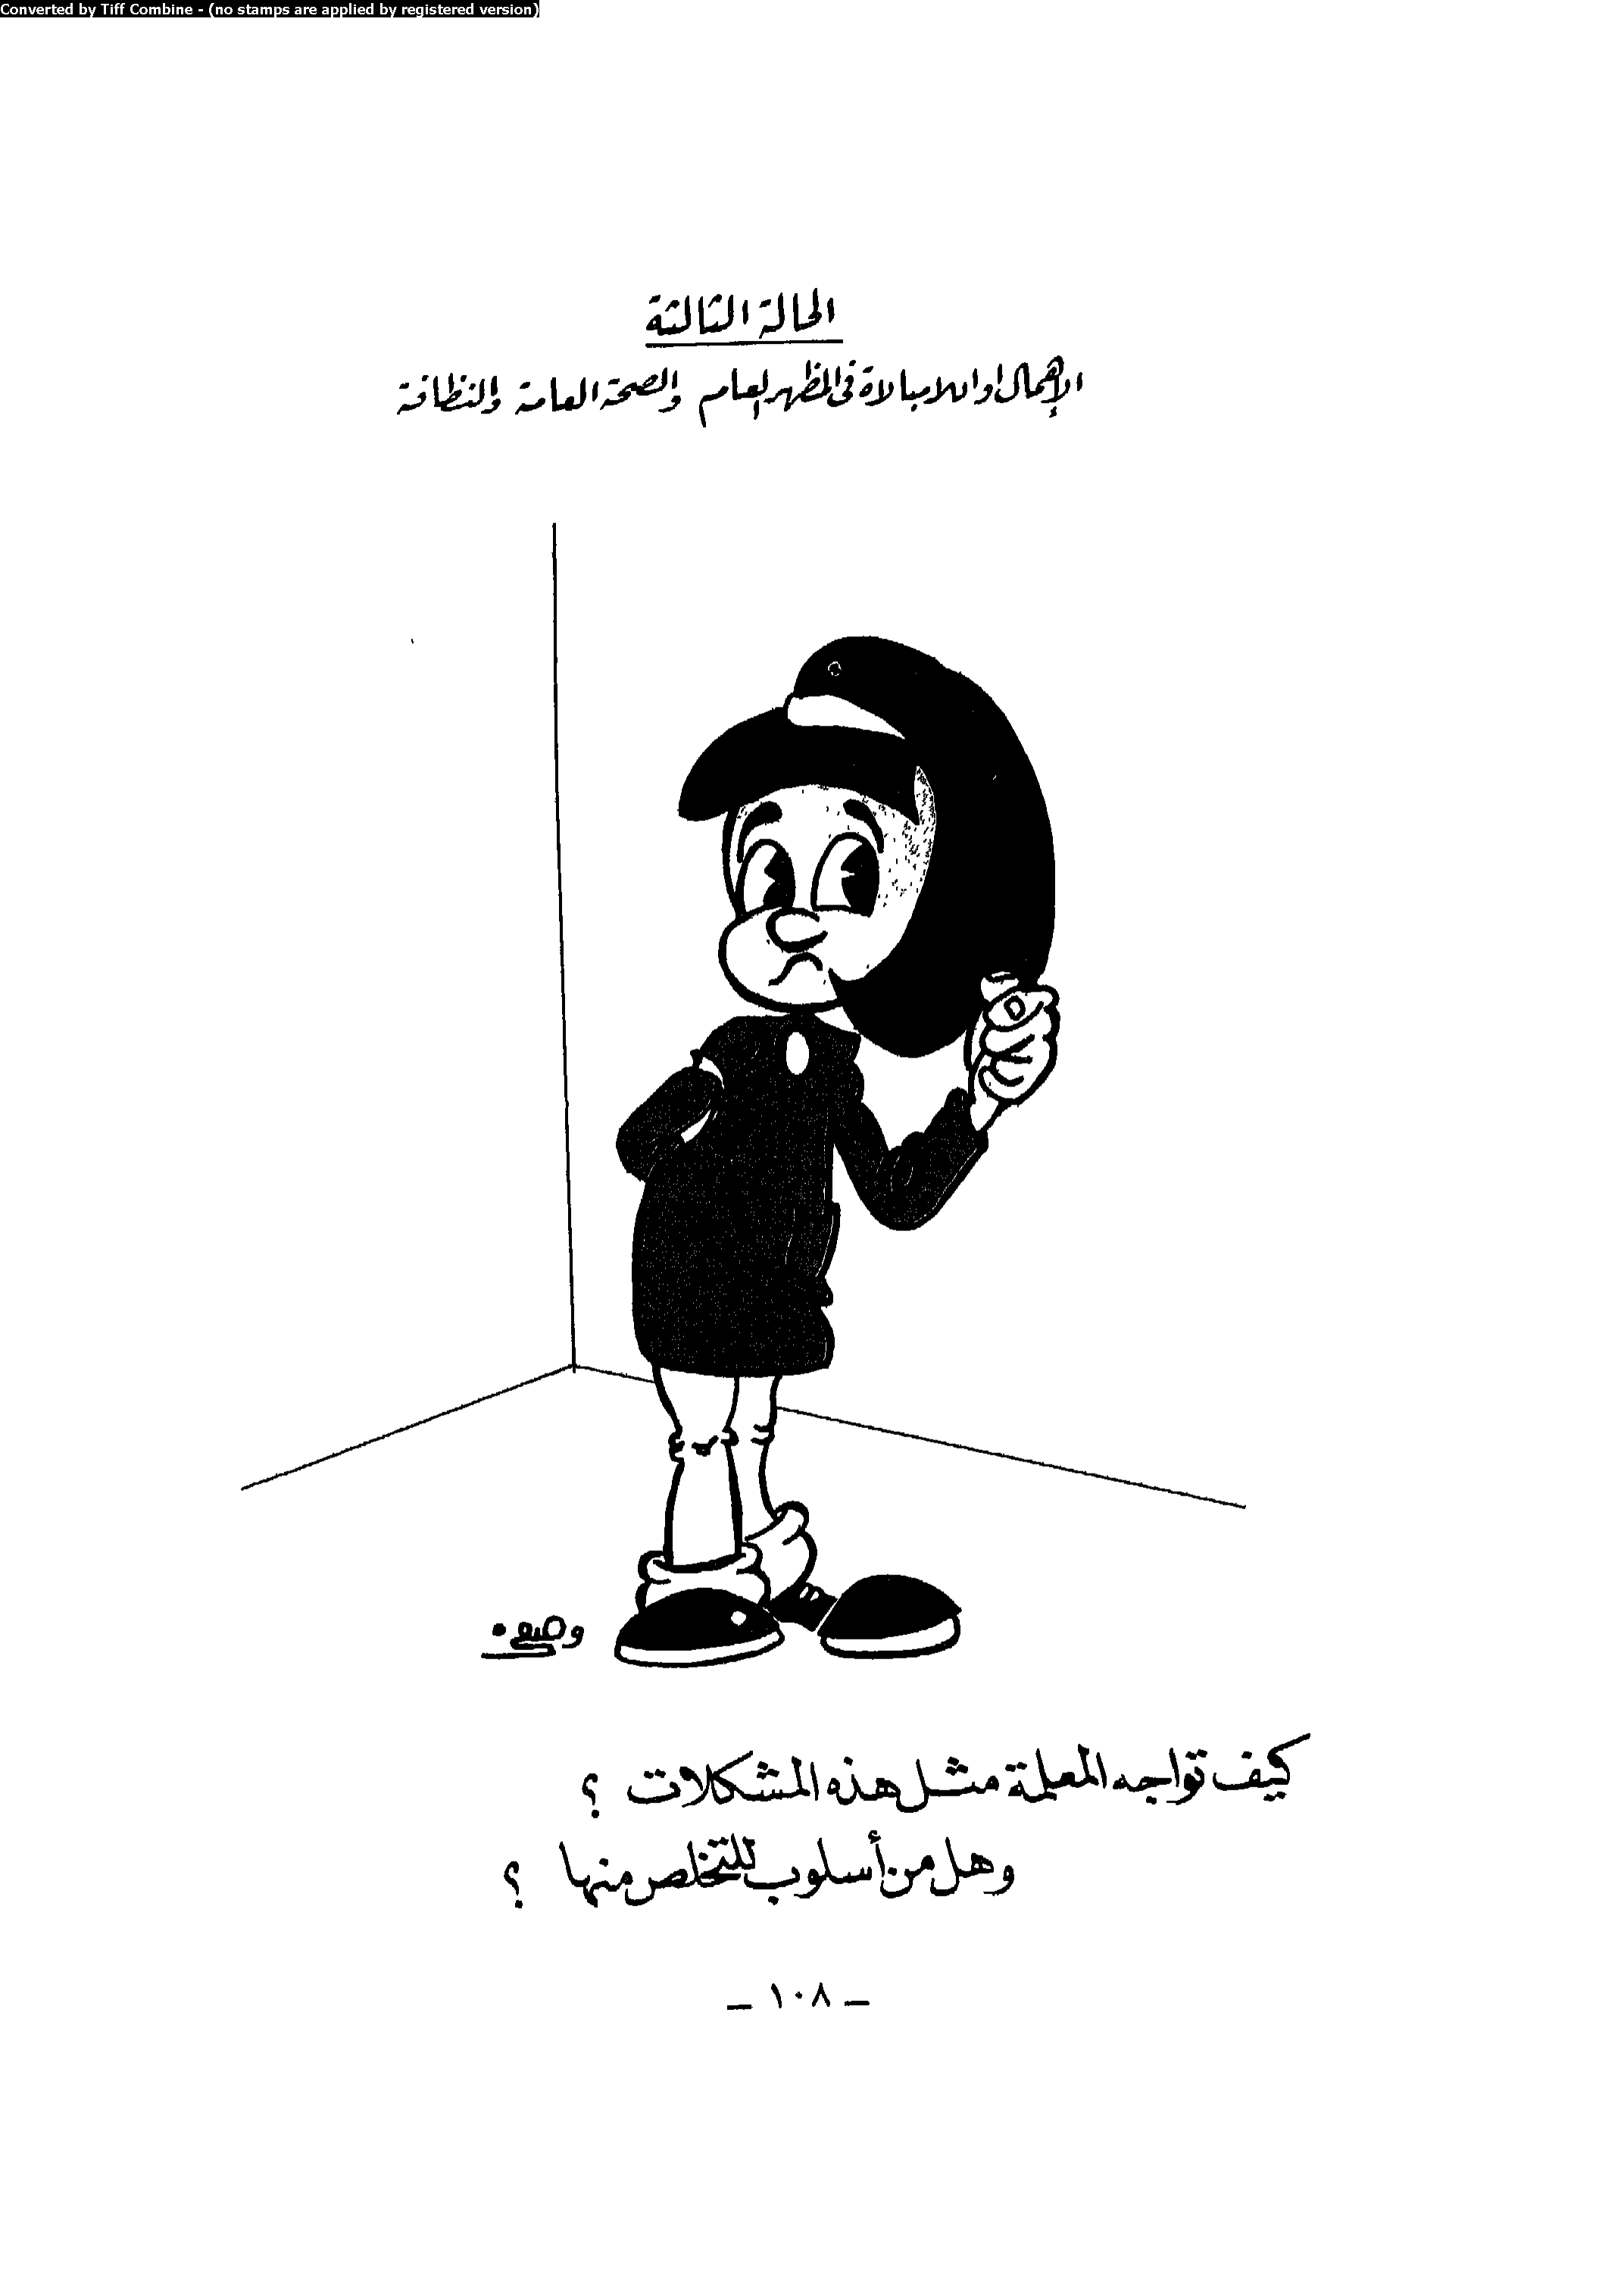 Converted by Tiff Combine - (no stamps are applied by registered version)
الحالة الثالثة
الإهمال او اللامبالاة فى المظهر العام والصحة العامة والنظافة
وصيف
كيف تواجه المعلمة مثل هذه المشكلات ؟
وهل من أسلوب للتخلص منها ؟
– ١٠٨ –